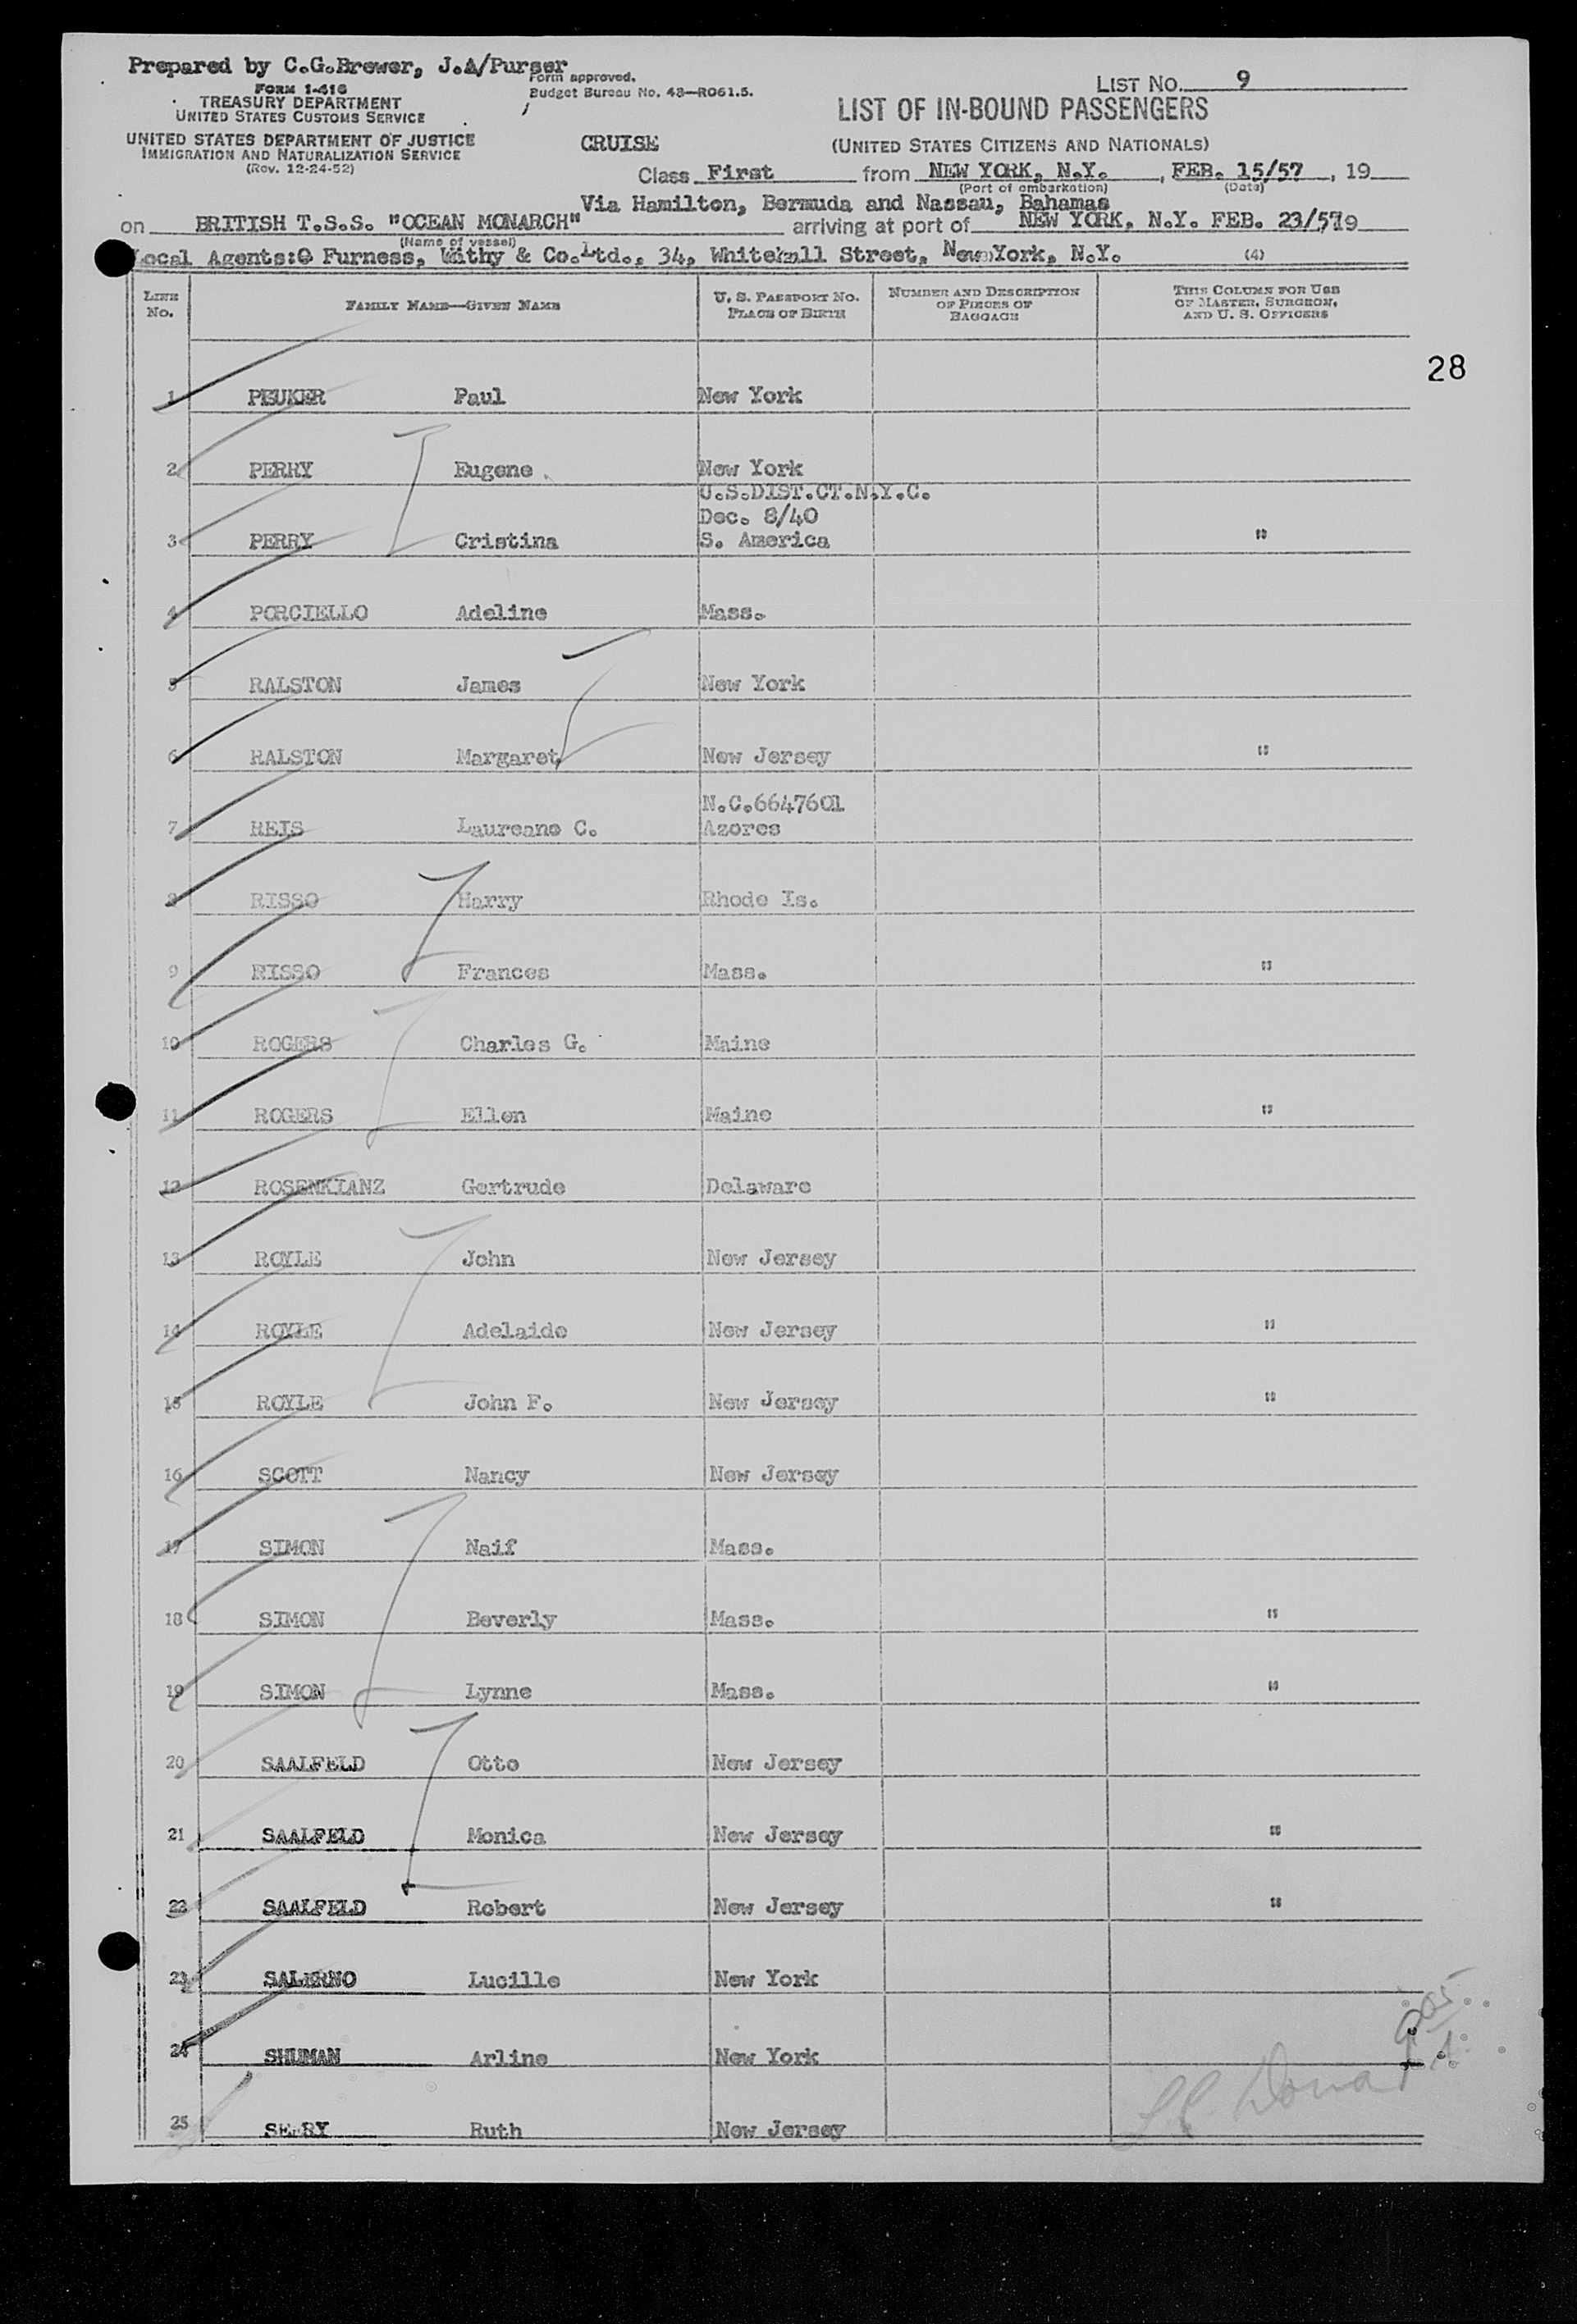 Prepared by C.G.Brewer, J.A/Purser
Form approved.
Budget Bureau No. 43—R061.5.
FORM I-416
TREASURY DEPARTMENT
UNITED STATES CUSTOMS SERVICE
UNITED STATES DEPARTMENT OF JUSTICE
IMMIGRATION AND NATURALIZATION SERVICE
(Rev. 12-24-52)
LIST NO. 9
LIST OF IN-BOUND PASSENGERS
(UNITED STATES CITIZENS AND NATIONALS)
CRUISE
Class First from NEW YORK, N.Y. , FEB. 15/57 , 19
(Port of embarkation) (Date)
Via Hamilton, Bermuda and Nassau, Bahamas
on BRITISH T.S.S. "OCEAN MONARCH" arriving at port of NEW YORK, N.Y. FEB. 23/57 19
(Name of vessel)
Local Agents: Furness, Withy & Co.Ltd., 34, Whitehall Street, New York, N.Y. (4)
LINE NO. FAMILY NAME—GIVEN NAME U. S. PASSPORT NO. PLACE OF BIRTH NUMBER AND DESCRIPTION OF PIECES OF BAGGAGE THIS COLUMN FOR USE OF MASTER, SURGEON, AND U. S. OFFICERS
28
1 PEUKER Paul New York
2 PERRY Eugene New York
U.S.DIST.CT.N.Y.C.
Dec. 8/40
3 PERRY Cristina S. America "
4 PORCIELLO Adeline Mass.
5 RALSTON James New York
6 RALSTON Margaret New Jersey "
N.C.6647601
7 REIS Laureano C. Azores
8 RISSO Harry Rhode Is.
9 RISSO Frances Mass. "
10 ROGERS Charles G. Maine
11 ROGERS Ellen Maine "
12 ROSENKIANZ Gertrude Delaware
13 ROYLE John New Jersey
14 ROYLE Adelaide New Jersey "
15 ROYLE John F. New Jersey "
16 SCOTT Nancy New Jersey
17 SIMON Naif Mass.
18 SIMON Beverly Mass. "
19 SIMON Lynne Mass. "
20 SAALFELD Otto New Jersey
21 SAALFELD Monica New Jersey "
22 SAALFELD Robert New Jersey "
23 SALERNO Lucille New York
24 SHUMAN Arline New York
25 Ruth New Jersey